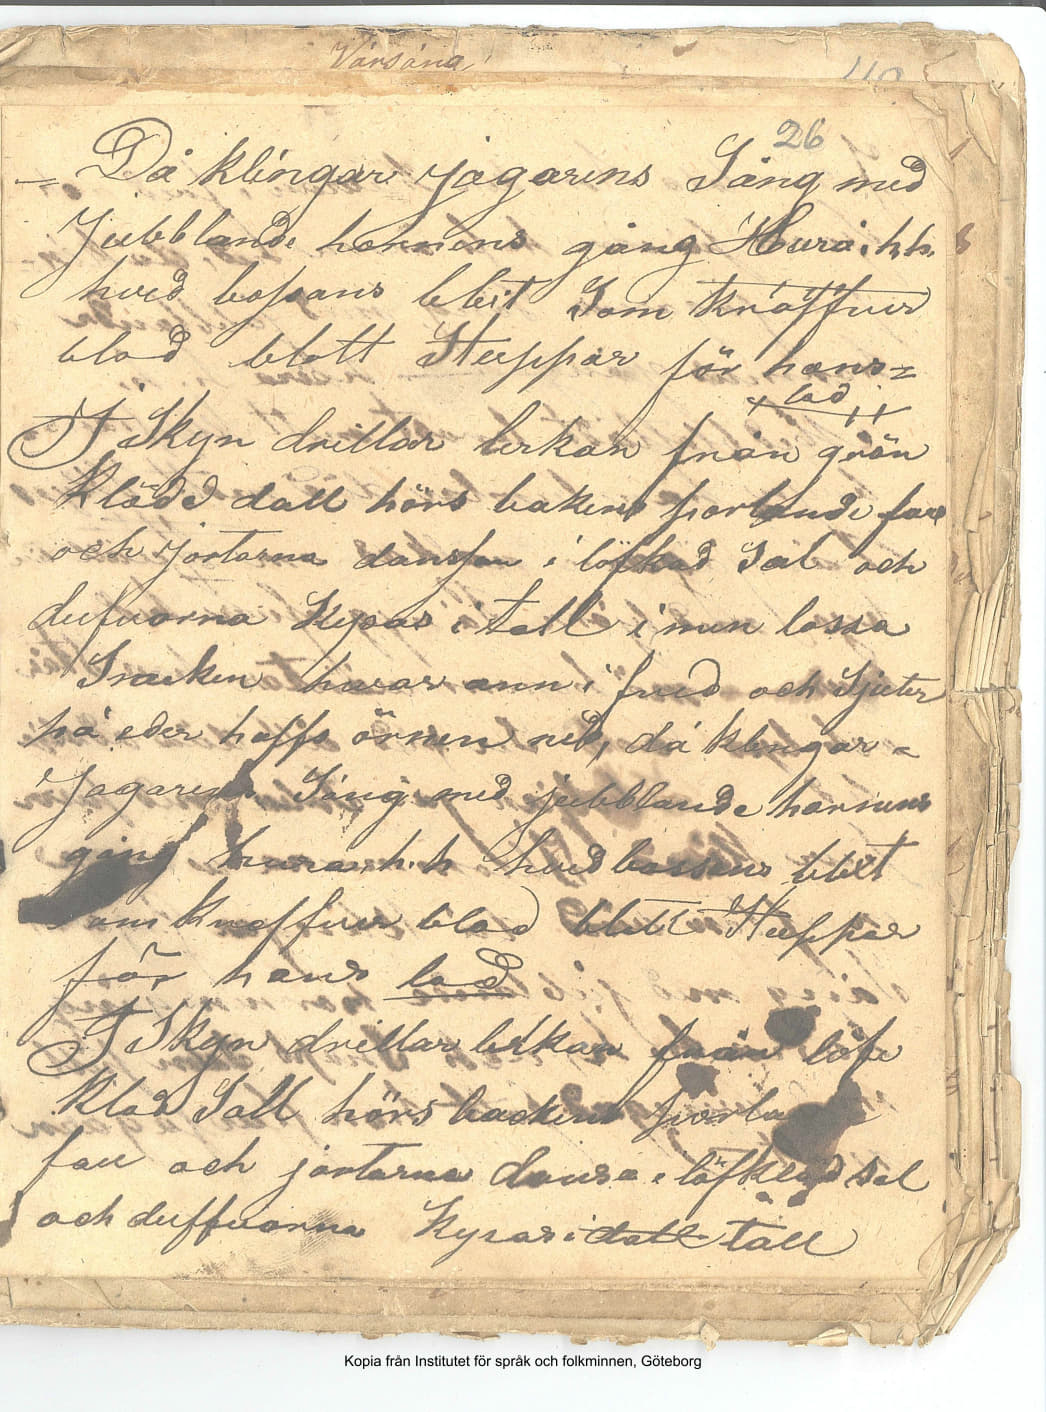 Vårsång
110
26
Då klingar jägarens Sång med
Jubblande hornens gång Hurá. h.h.
hvid bossans blixt Som kräffvur
blod blott Stuppar för hans
lod
I Skyn drillar lerkan från grön
Klädd dall hörs bakens porlande fall
och jortarna danssa i löfkad Sal och
dufvorna Kysas i tall i mun lossa
Snaken hvarann i frid och Sjuter
på eder haffs örnen ned, då klingar
Jagarens Sång med jubblande hornens
gång hurra. h. h hvid bossans blixt
om kneffvur blod blott Stuppar
för hans lod
I Skyn drillar lerkan från löf
klad Sall hörs backens porla
fall och jortarna dansa i löfklad sal
och duffvorna Kysas i dall tall
Kopia från Institutet för språk och folkminnen, Göteborg